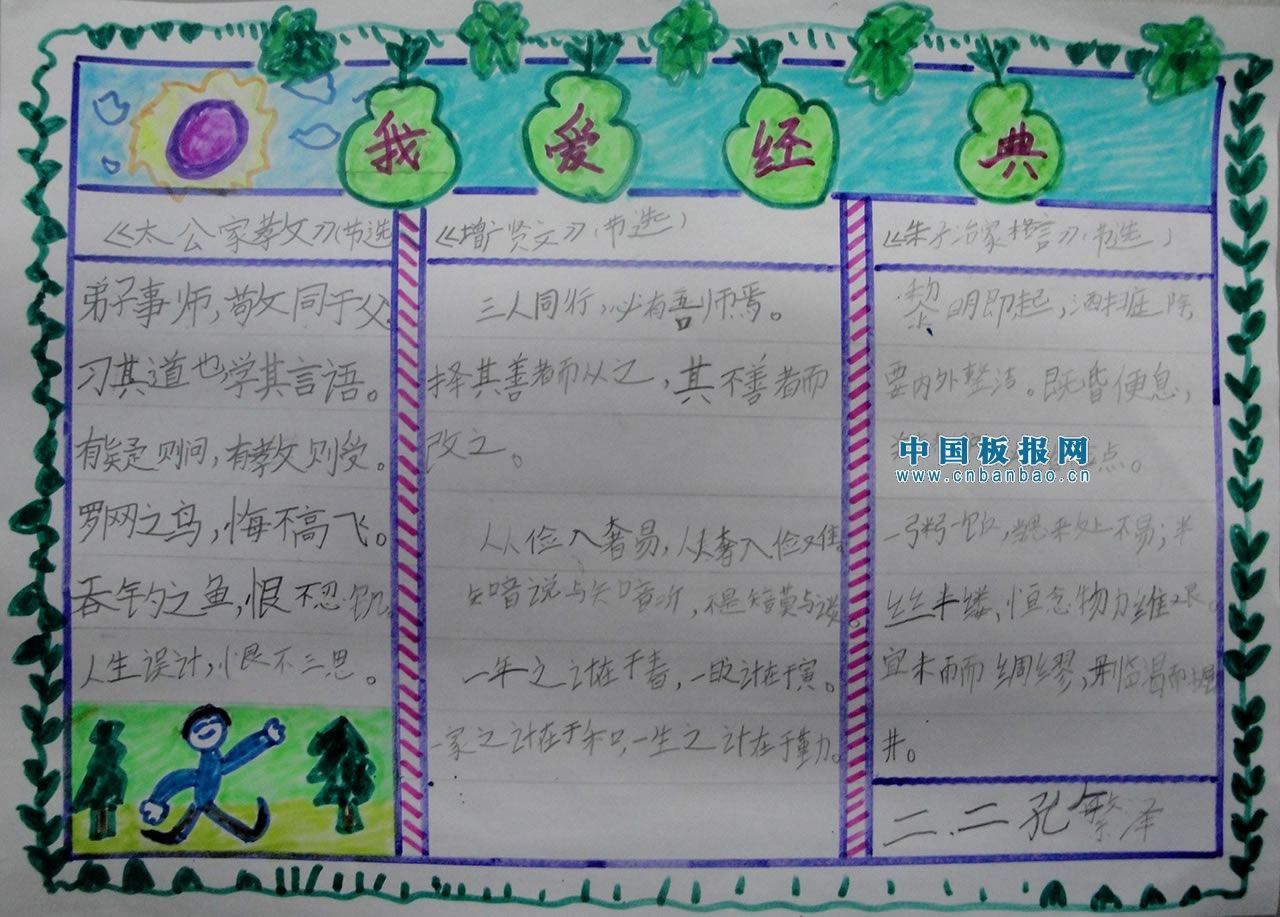 我爱经典
《太公家教》(节选
弟子事师，敬同于父
习其道也，学其言语。
有疑则问，有教则受。
罗网之鸟，悔不高飞。
吞钓之鱼，恨不忍饥
人生误计，恨不三思。
《增广贤文》(节选)
三人同行，必有吾师焉。
择其善者而从之，其不善者而
改之。
从俭入奢易，从奢入俭难
知音说与知音听，不是知音莫与谈。
一年之计在于春，一日之计在于寅。
一家之计在于和，一生之计在于勤。
《朱子治家格言》(节选)
黎明即起，洒扫庭除
要内外整洁。既昏便息，
点。
中国板报网
www.cnbanbao.cn
一粥一饭，当思来处不易；半
丝半缕，恒念物力维艰。
宜未雨而绸缪，毋临渴而掘
井。
二.二孔繁泽